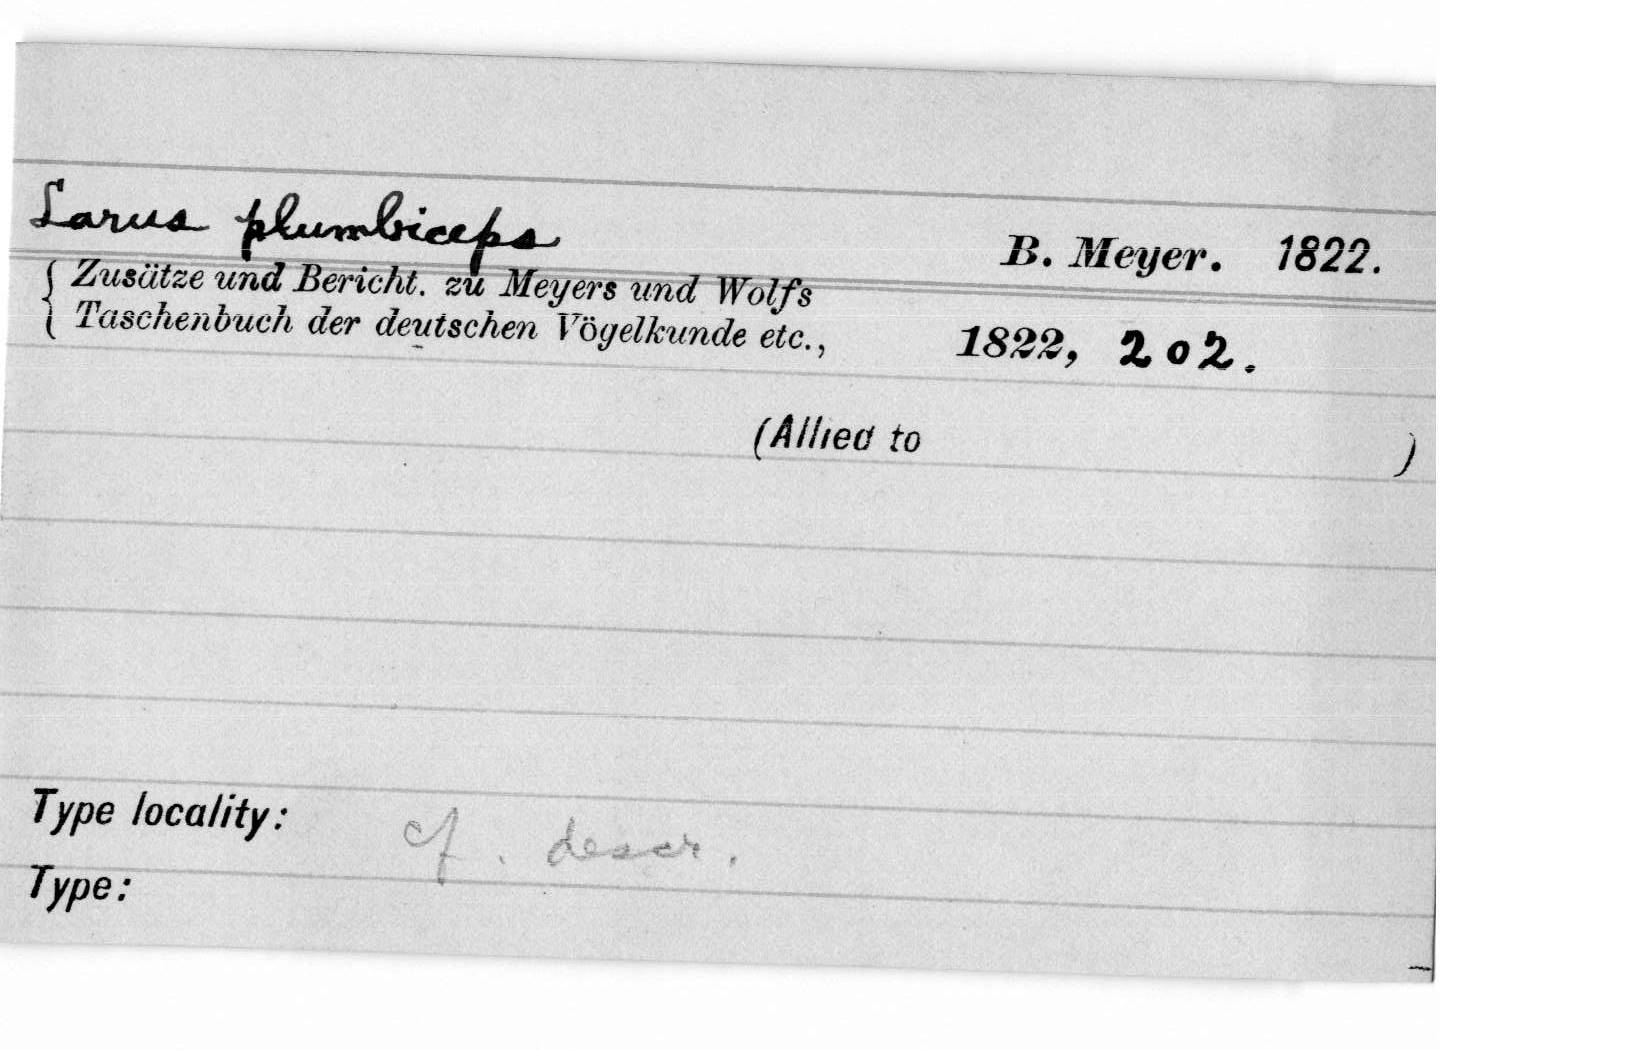 Larus plumbiceps B. Meyer. 1822.
Zusätze und Bericht. zu Meyers und Wolfs
Taschenbuch der deutschen Vögelkunde etc., 1822, 202.
(Allied to )
Type locality: cf. descr.
Type: